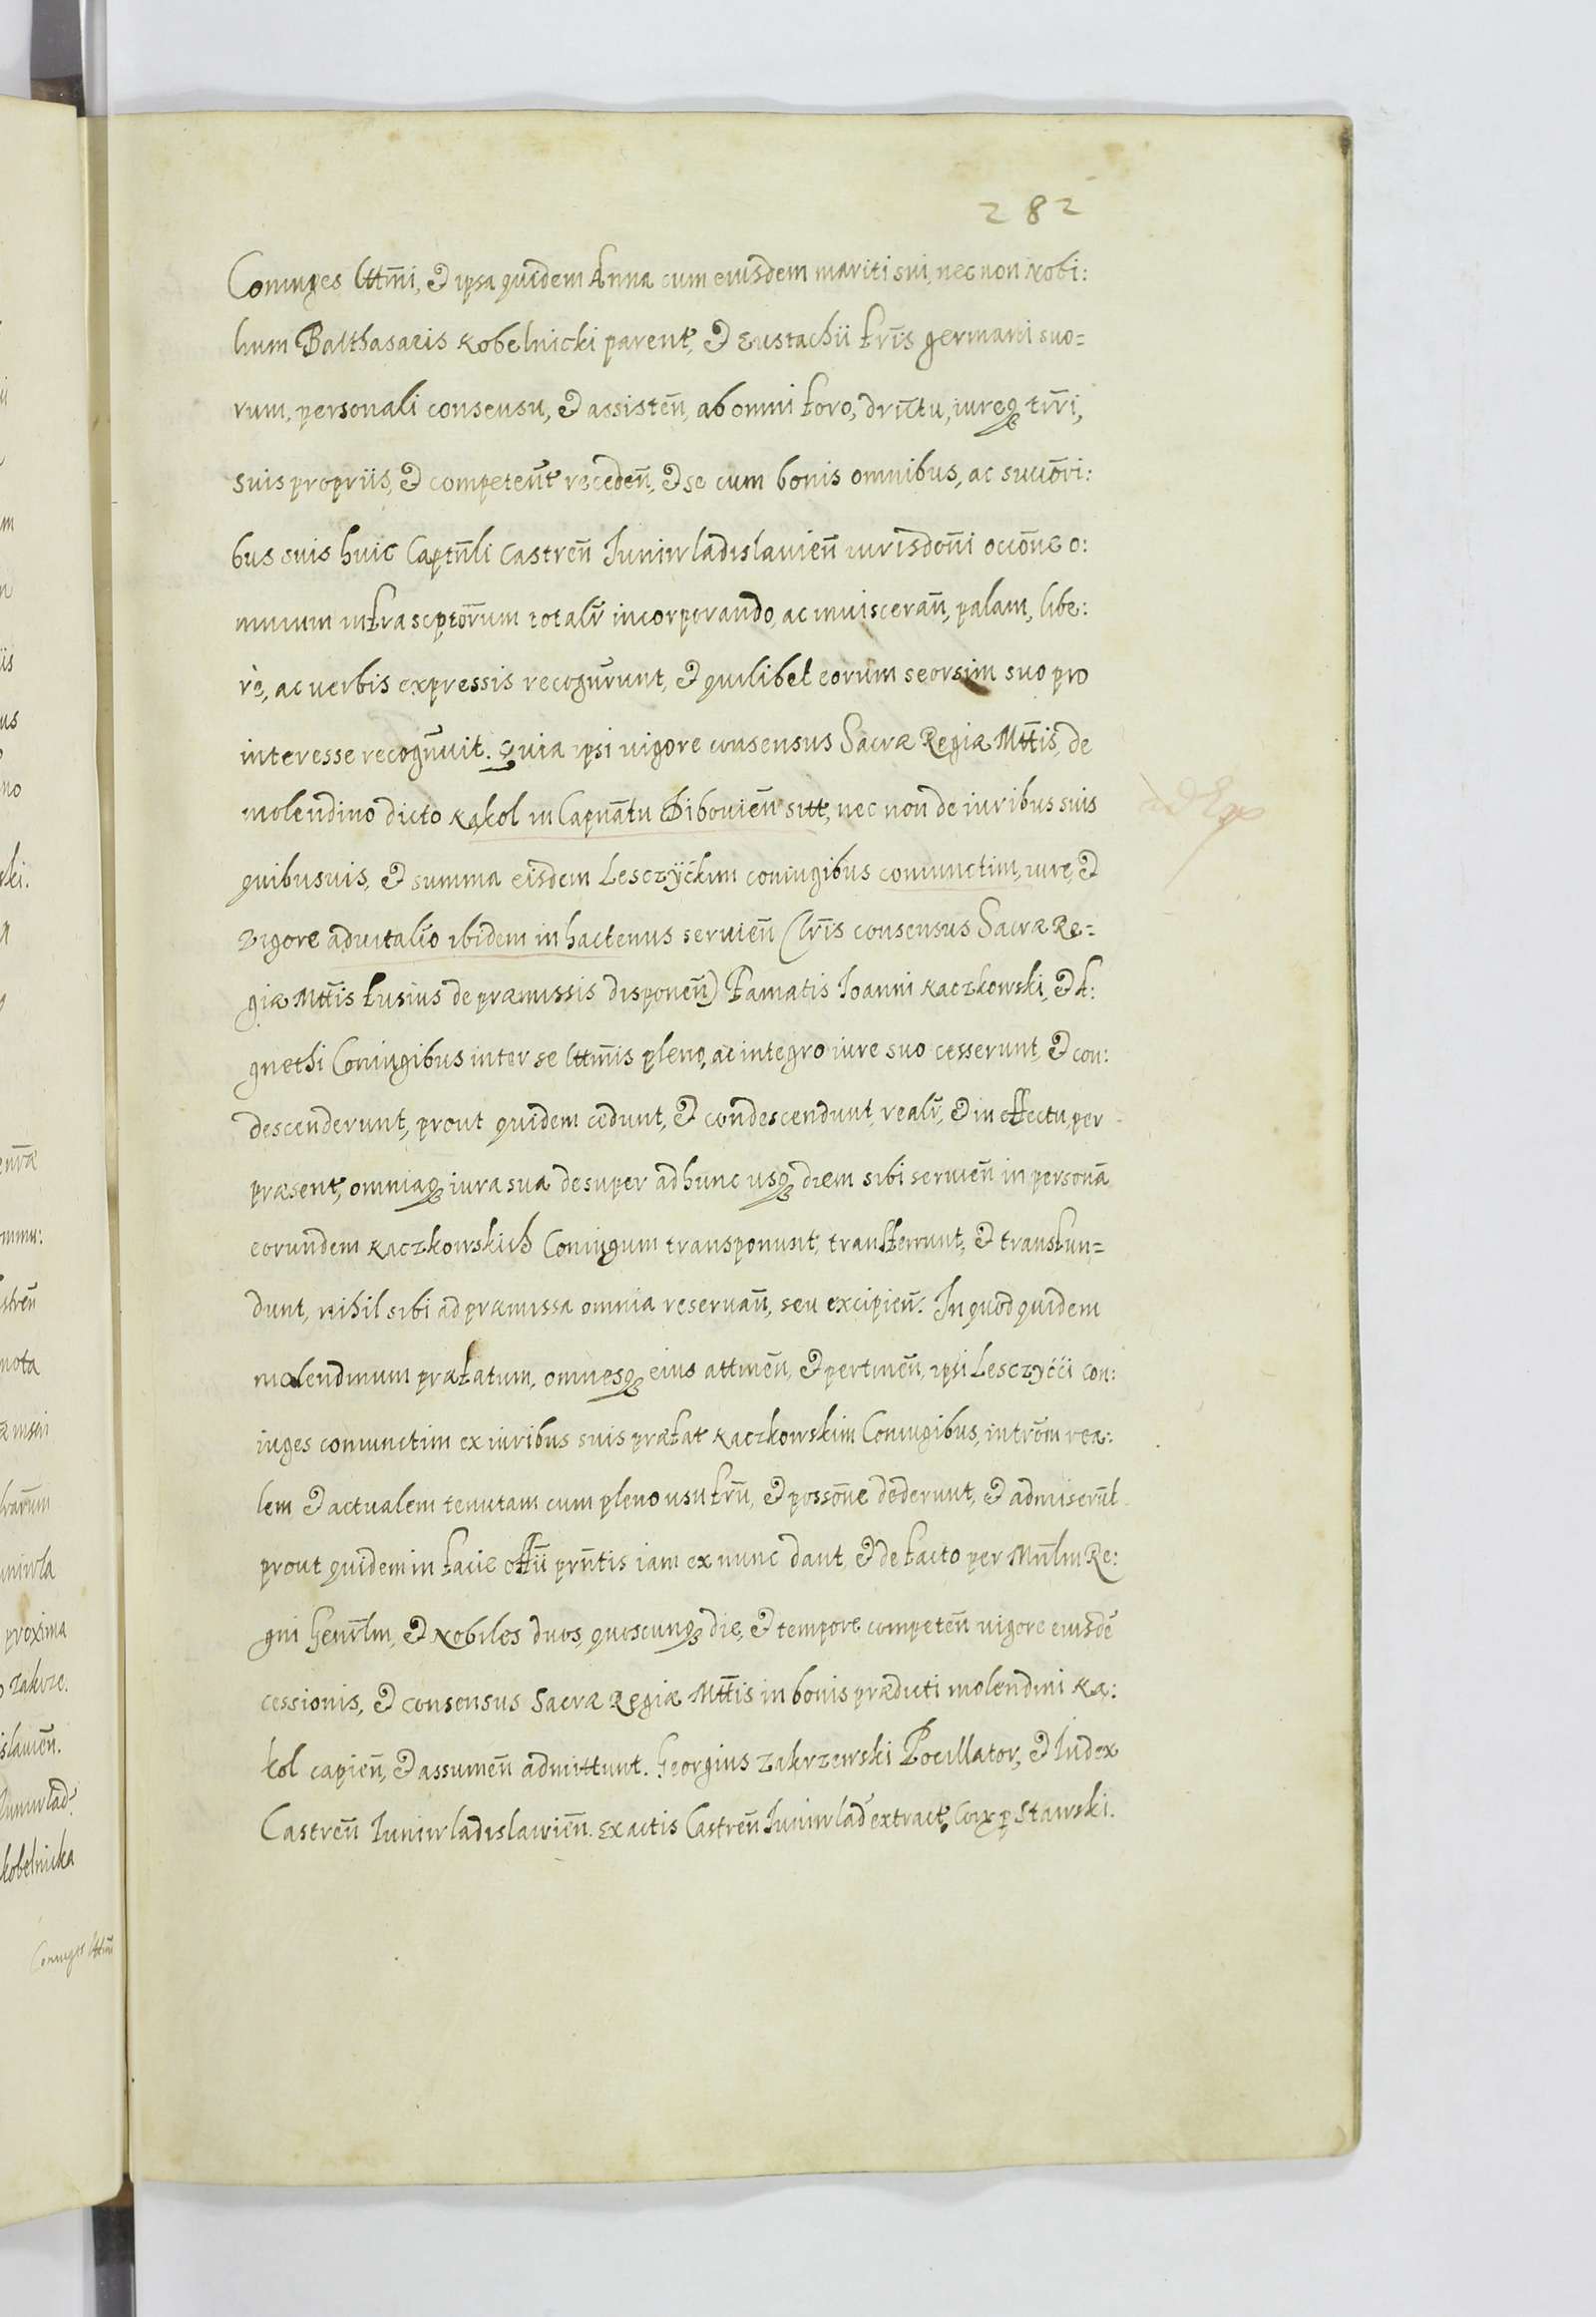 282
Coniuges lttm̃i, & ipsa quidem Anna cum eiusdem mariti sui, nec non Nobi:
lium Balthasaris Kobelnicki parent, & Eustachii fr̃is germani suo=
rum, personali consensu, & assisteñ, ab omni foro, dr̃ictu, iureq₃ tr̃ri,
suis propriis, & competeñt recedeñ, & se cum bonis omnibus, ac succõri:
bus suis huic Captñli Castreñ Iuniwladislauieñ iurisdoñi occõne o:
mnium infrascptõrum totalr̃ incorporando, ac inuisceráñ, palam, libe:
rè, ac verbis expressis recognũrunt, & quilibet eorum seorsim suo pro
interesse recogñuit. Quia ipsi uigore consensus Sacræ Regiæ Mtt̃is, de
molendino dicto Kąkol in Capñatu Diboviẽn sitt, nec non de iuribus suis
ad Exp
quibusuis, & summa eisdem Lesczyćkim coniugibus coniunctim, iure, &
vigore aduitalĩo ibidem in hactenus seruieñ (lr̃is consensus Sacræ Re=
giæ Mtt̃is fusius de præmissis disponeñ) Famatis Ioanni Kaczkowski, & A:
gnethi Coniugibus inter se lttm̃is pleno, ac integro iure suo cesserunt, & con:
descenderunt, prout quidem cedunt, & condescendunt, realr̃, & in effectu, per
præsent, omniaq₃ iura sua desuper ad hunc usq₃ diem sibi seruieñ in personã
eorundem Kaczkowskich Coniugum transponunt, transferrunt, & transfun=
dunt, nihil sibi ad præmissa omnia reseruañ, seu excipieñ. In quod quidem
molendinum præfatum, omnesq₃ eius attineñ, & pertineñ, ipsi Lesczyćći con:
iuges coniunctim ex iuribus suis præfat Kaczkowskim Coniugibus, intrõm rea:
lem & actualem tenutam cum pleno usufrũ, & possõne dederunt, & admiserũt
prout quidem in facie offĩi prñtis iam ex nunc dant, & de facto per Mnl̃m Re:
gni Genrl̃m, & Nobiles duos, quoscunq₃ die, & tempore competeñ uigore eiusdẽ
cessionis, & consensus Sacræ Regiæ Mtt̃is in bonis prædicti molendini Ką:
kol capieñ, & assumeñ admittunt. Georgius Zakrzewski Pocillator, & Iudex
Castreñ Iuniwladislawieñ. Ex actis Castreñ Iuniwlad extract. Corx p Stawski.
Coniuges lttm̃i